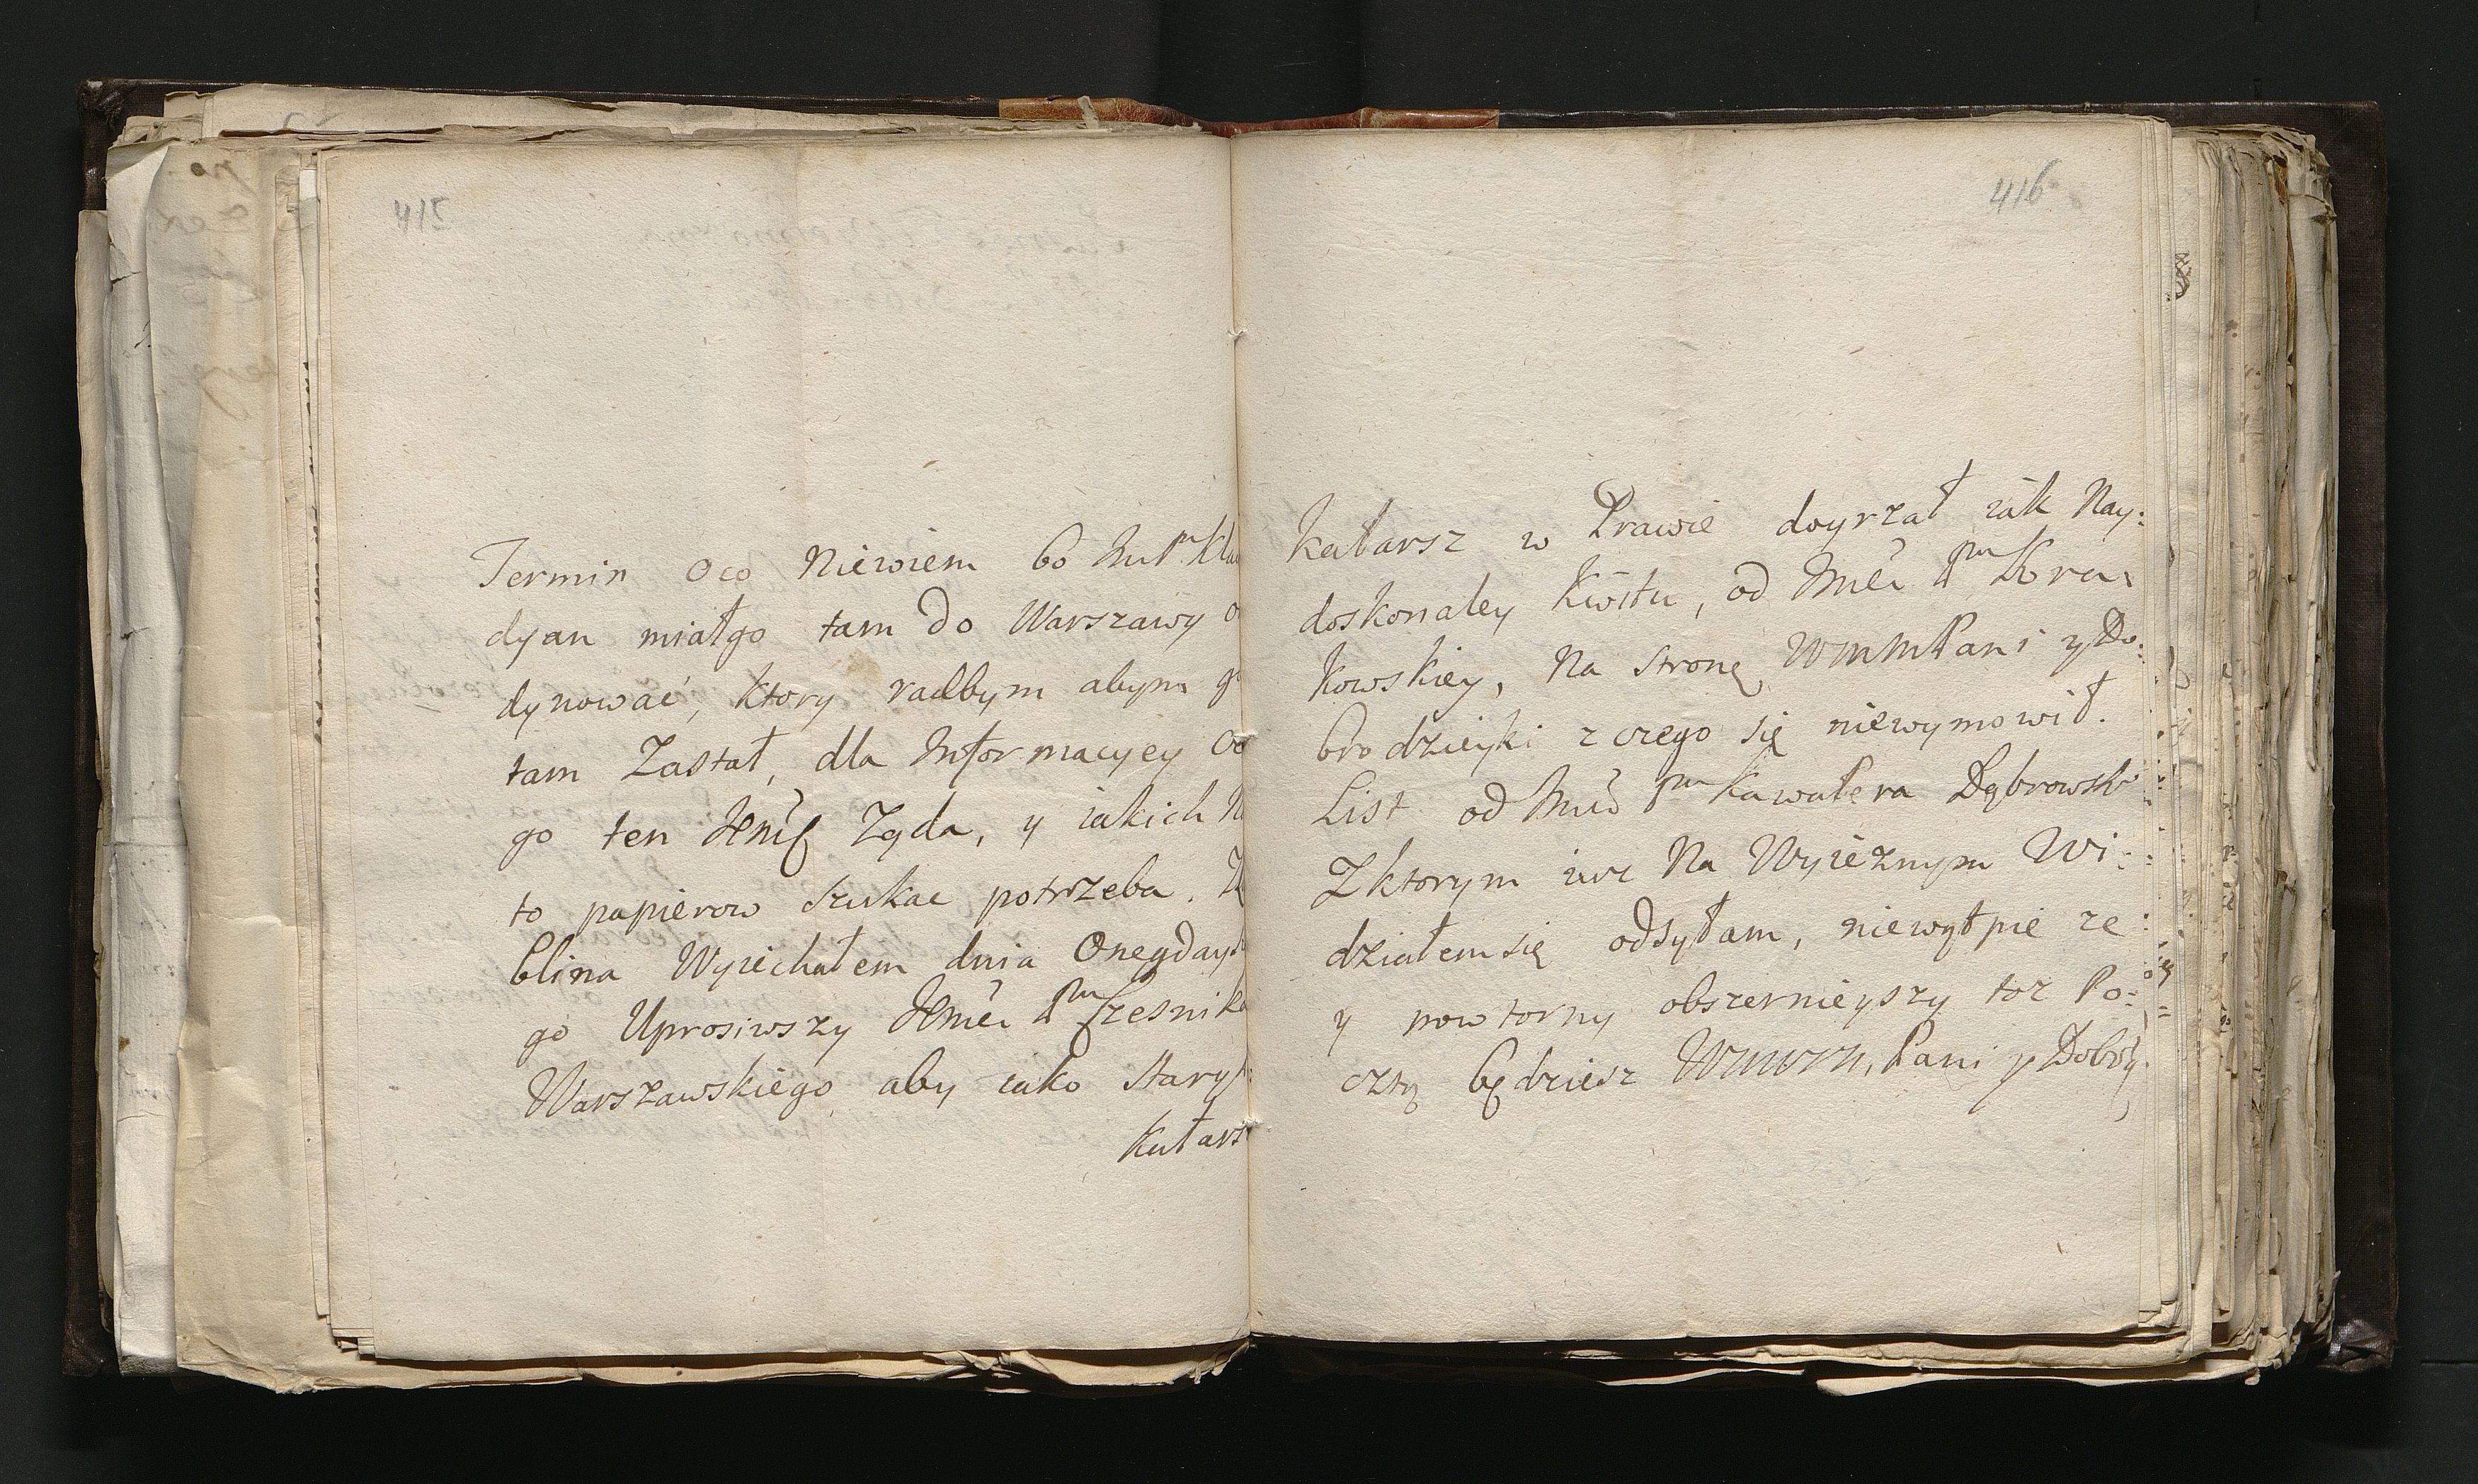 415
Termin Oco Niewiem bo
dyan miałgo tam do Warszawy
dynować, ktory radbym abym
tam Zastał, dla Informacyey
go ten Żąda, y iakich
to papierow szukac potrzeba.
blina Wyiechałem dnia Onegday
go Uprosiwszy Jmci Pna Czesnika
Warszawskiego aby iako Stary
Katarz
416
katarsz w Prawie doyrzał iak Nay:
doskonaley Kwitu, od Jmci Pni Kra:
kowskiey, Na Stronę WMMPani y Do:
brodzieyki z czego się niewymowił.
List od Jmci Pna Kawalera Dąbrowsk
Zktorym iuz Na Wyieznym Wi:
działemsię odsyłam, niewątpie ze
y powtorny obszernieyszy toz Po:
cztą będziesz Pani y Dobrỳ